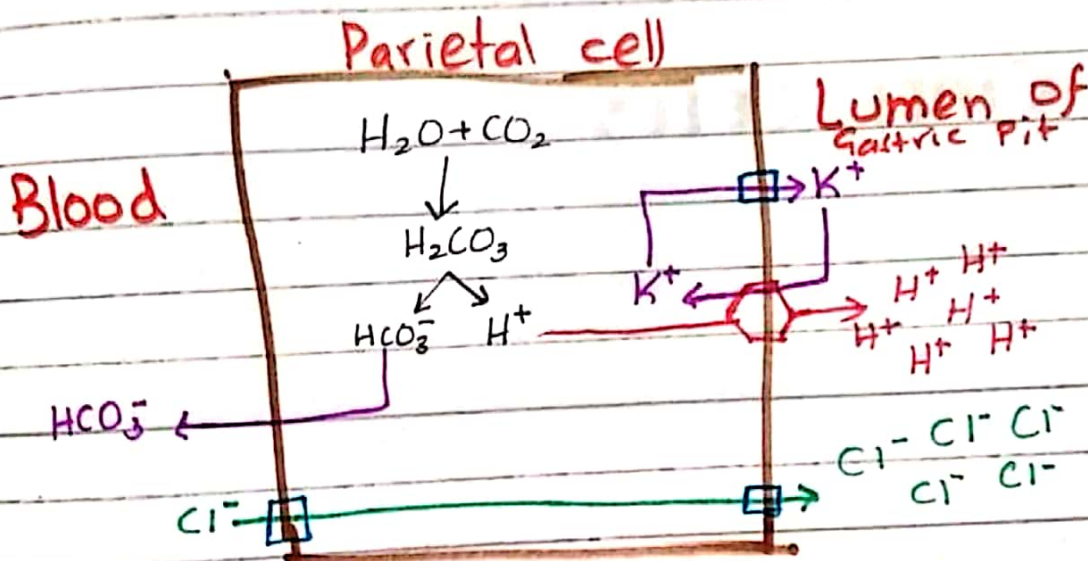 Parietal cell
Lumen of
Gastric Pit
Blood
H₂O + CO₂
H₂CO₃
HCO₃⁻ H⁺
K⁺
K⁺
H⁺ H⁺
H⁺ H⁺
H⁺ H⁺
HCO₃⁻
Cl⁻
Cl⁻ Cl⁻ Cl⁻
Cl⁻ Cl⁻